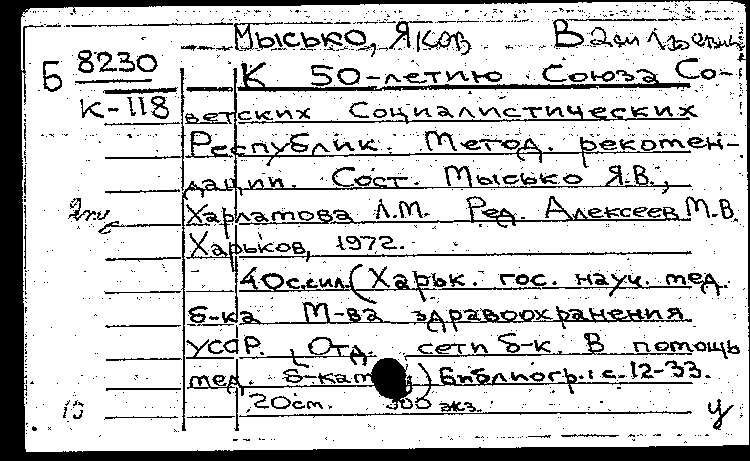 Мысько, Яков Васильевич
Б 8230
К-118
К 50-летию Союза Со-
ветских Социалистических
Республик. Метод. рекомен-
дации. Сост. Мысько Я.В.,
Харламова Л.М. Ред. Алексеев М.В.
Харьков, 1972.
40с.сил. (Харьк. гос. науч. мед.
б-ка М-ва здравоохранения
УССР. Отд. сети б-к. В помощь
мед. б-кам) Библиогр.: с. 12-33.
20см. 300 экз.